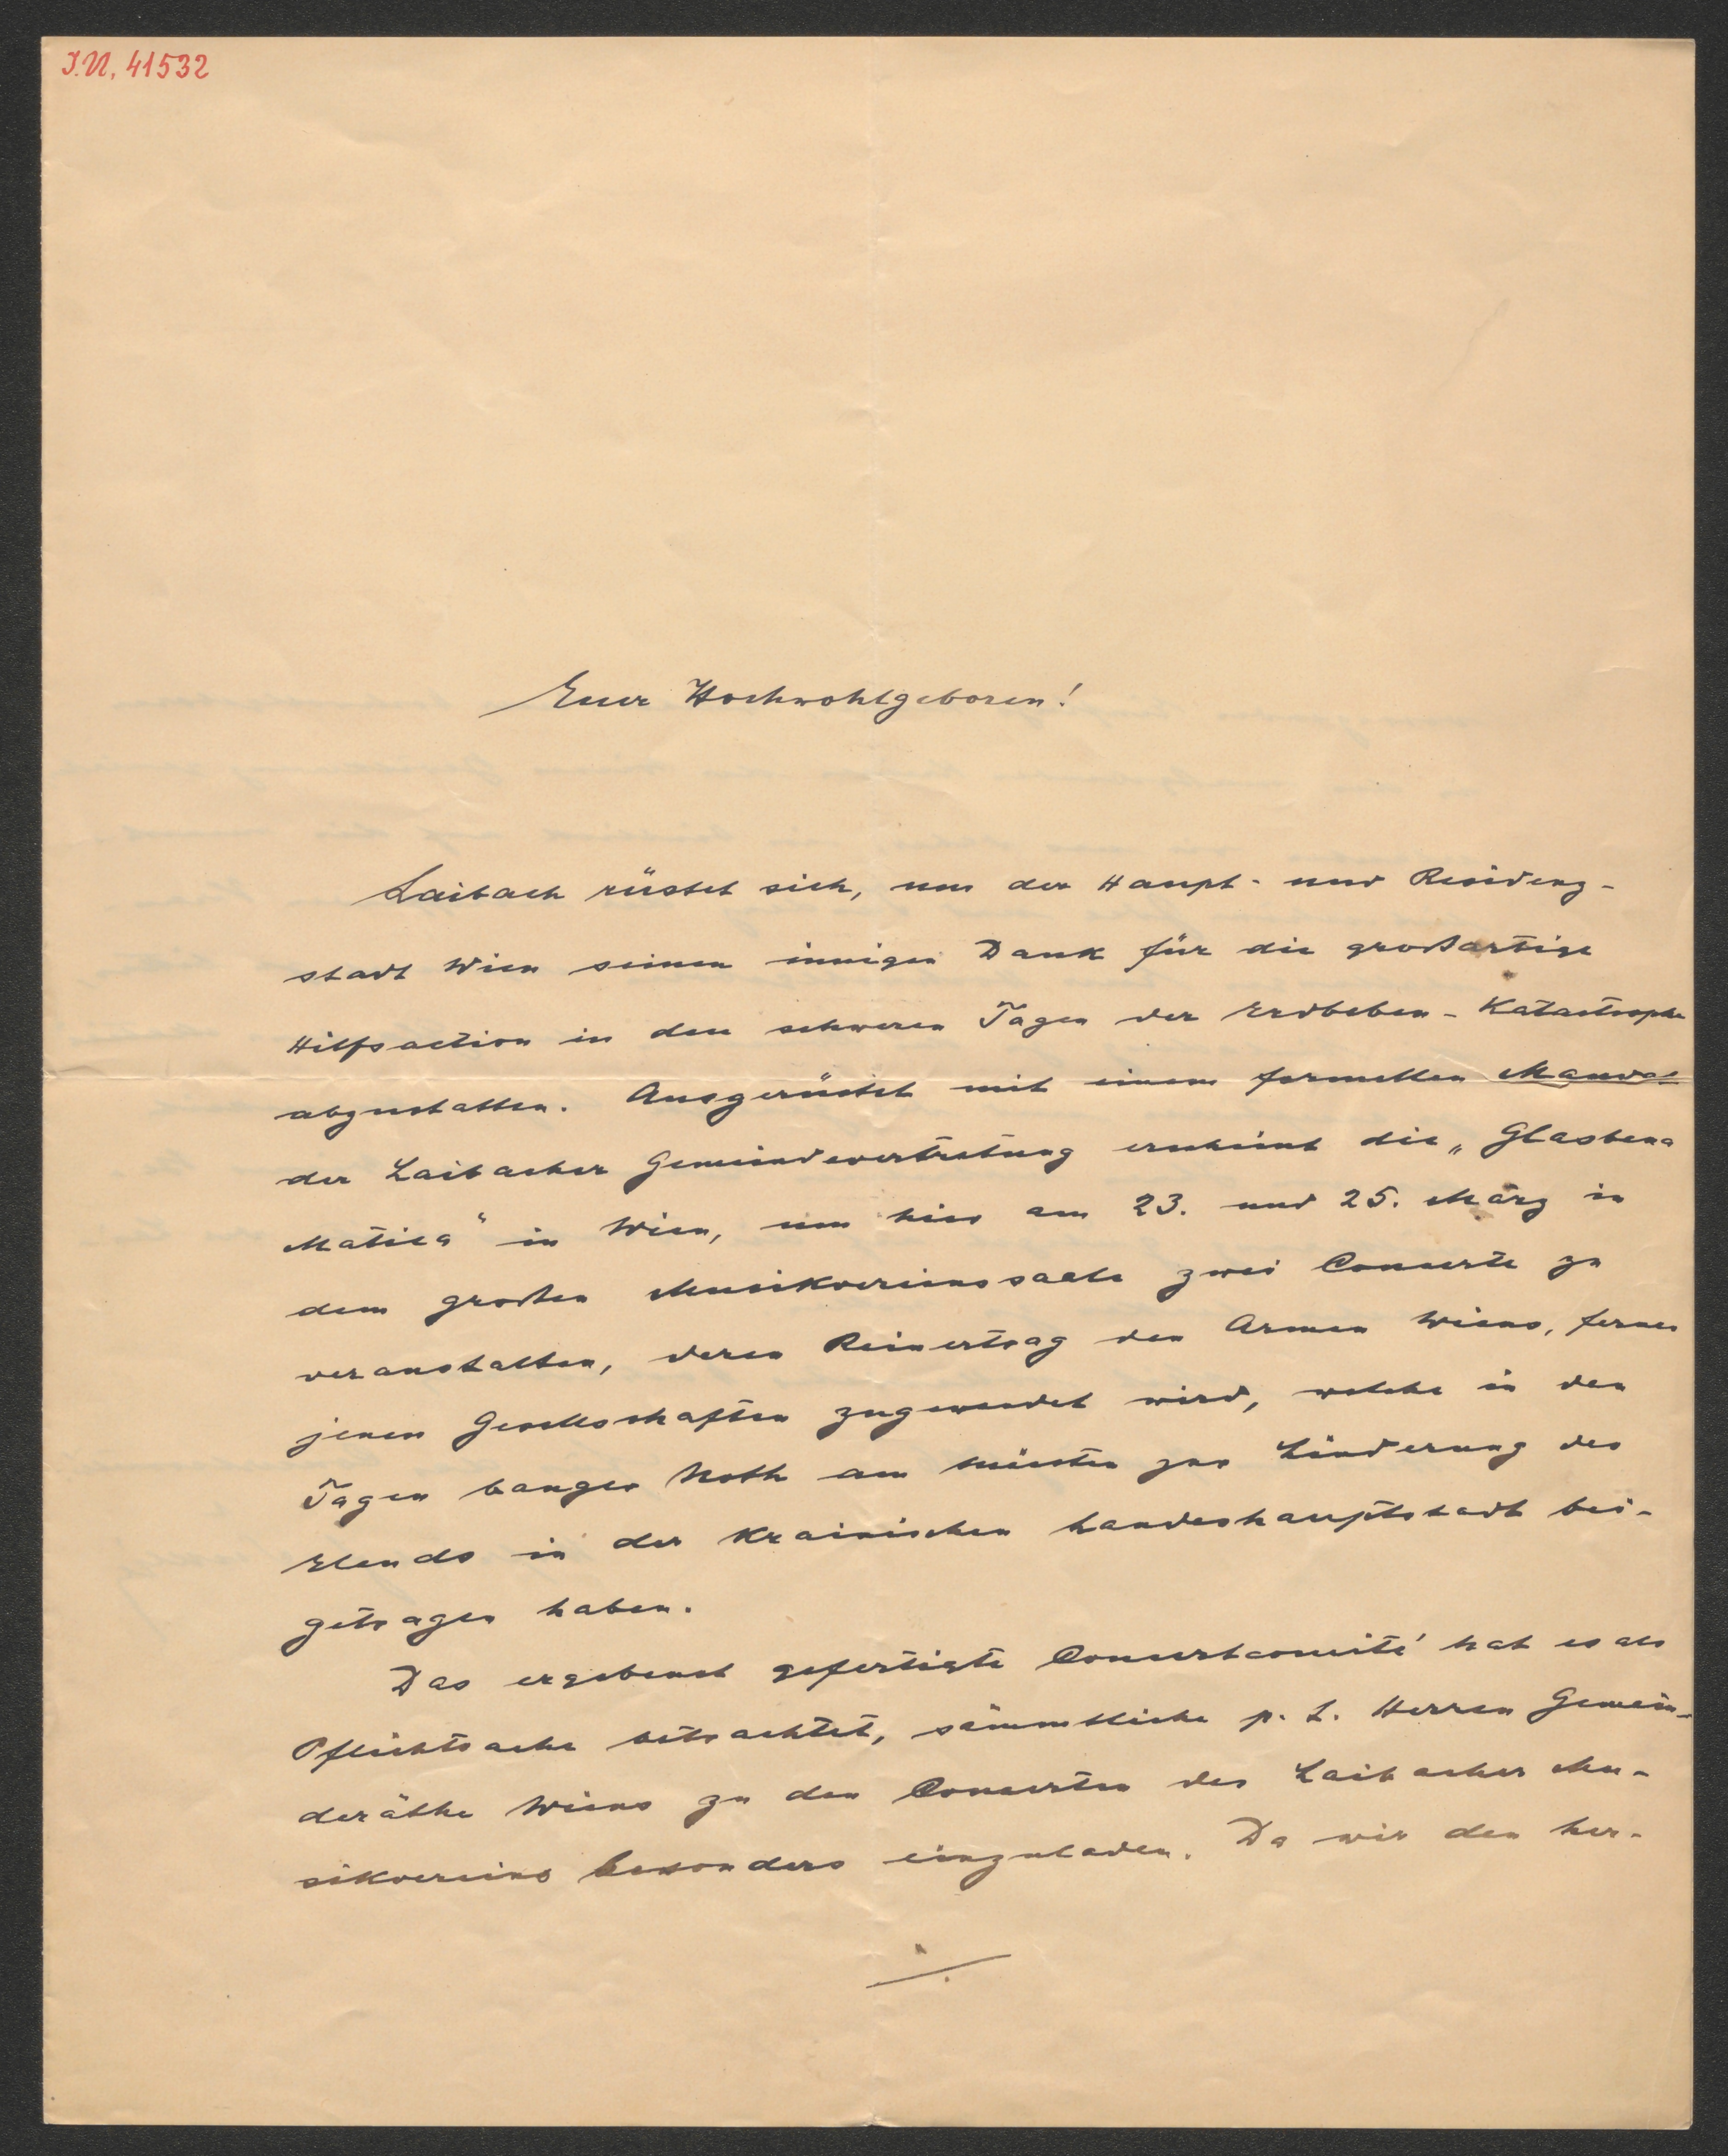 I.N. 41532
Euer Hochwohlgeboren!
Laibach rüstet sich, um der Haupt- und Residenz-
stadt Wien seinen innigen Dank für die großartige
Hilfsaction in den schweren Tagen der Erdbeben-Katastrophe
abzustatten. Ausgerüstet mit einem formellen Mandat
der Laibacher Gemeindevertretung erscheint die „Glasbena
Matica" in Wien, um hier am 23. und 25. März in
dem großen Musikvereinssaale zwei Concerte zu
veranstalten, deren Reinertrag den Armen Wiens, ferner
jenen Gesellschaften zugewendet wird, welche in den
Tagen banger Noth am meisten zur Linderung des
Elends in der krainischen Landeshauptstadt bei-
getragen haben.
Das ergebenst gefertigte Concertcomité hat es als
Pflichtsache betrachtet, sämmtliche p. t. Herren Gemein-
deräthe Wiens zu den Concerten des Laibacher Mu-
sikvereins besonders einzuladen. Da wir den her-
./.